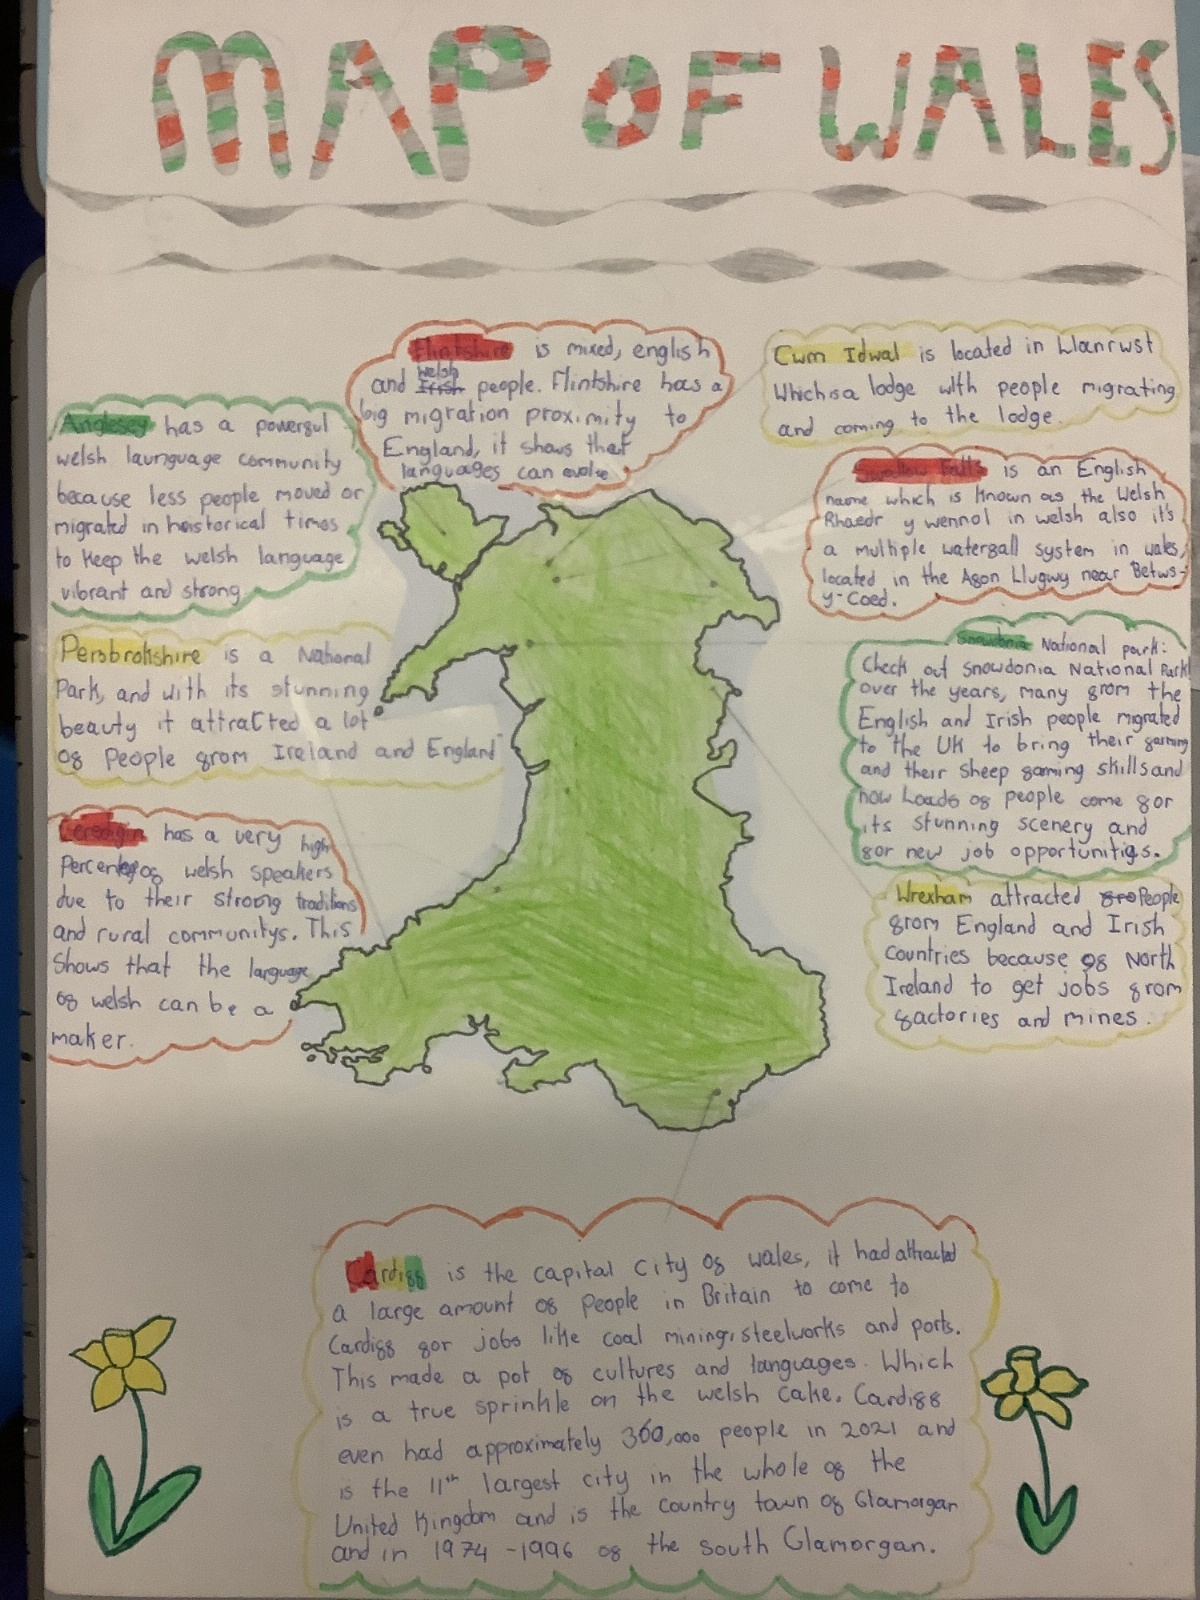 MAP OF WALES
Flintshire is mixed, english
and Irish welsh people. Flintshire has a
big migration proximity to
England, it shows that
languages can evolve.
Cwm Idwal is located in Llanrwst
Which is a lodge with people migrating
and coming to the lodge.
Anglesey has a powerful
welsh launguage community
because less people moved or
migrated in historical times
to keep the welsh language
vibrant and strong
Swallow Falls is an English
name which is known as the Welsh
Rhaedr y wennol in welsh also it's
a multiple waterfall system in wales,
located in the Afon Llugwy near Betws-
y-Coed.
Pembrokshire is a National
Park, and with its stunning
beauty it attracted a lot
of People from Ireland and England
Snowdonia National park:
Check out Snowdonia National Park
over the years, many from the
English and Irish people migrated
to the UK to bring their farming
and their sheep faming skills and
now Loads of people come for
its stunning scenery and
for new job opportunities.
Ceredigin has a very high
of welsh speakers
due to their stroong traditions
and rural communitys. This
Shows that the language
of welsh can be a
maker.
Wrexham attracted People
from England and Irish
countries because of North
Ireland to get jobs from
factories and mines.
Cardiff is the capital City of wales, it had attracted
a large amount of People in Britain to come to
Cardiff for jobs like coal mining, steelworks and ports.
This made a pot of cultures and languages. Which
is a true sprinkle on the welsh cake. Cardiff
even had approximately 360,000 people in 2021 and
is the 11th largest city in the whole of the
United Kingdom and is the country town of Glamorgan
and in 1974 -1996 of the south Glamorgan.